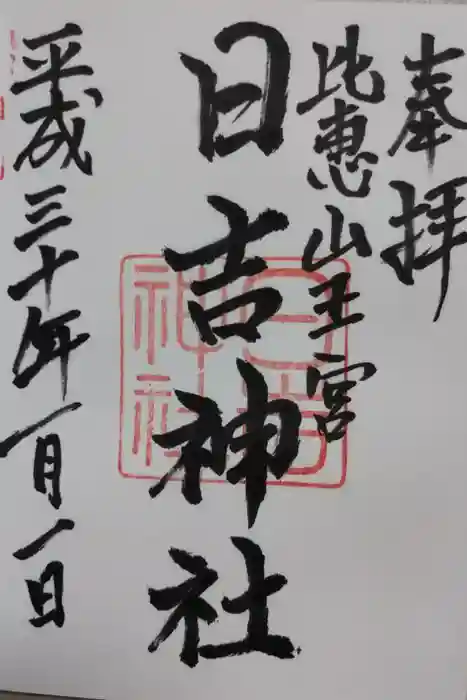 奉拝
比恵山王宮
日吉神社
平成三十年一月一日
日吉神社